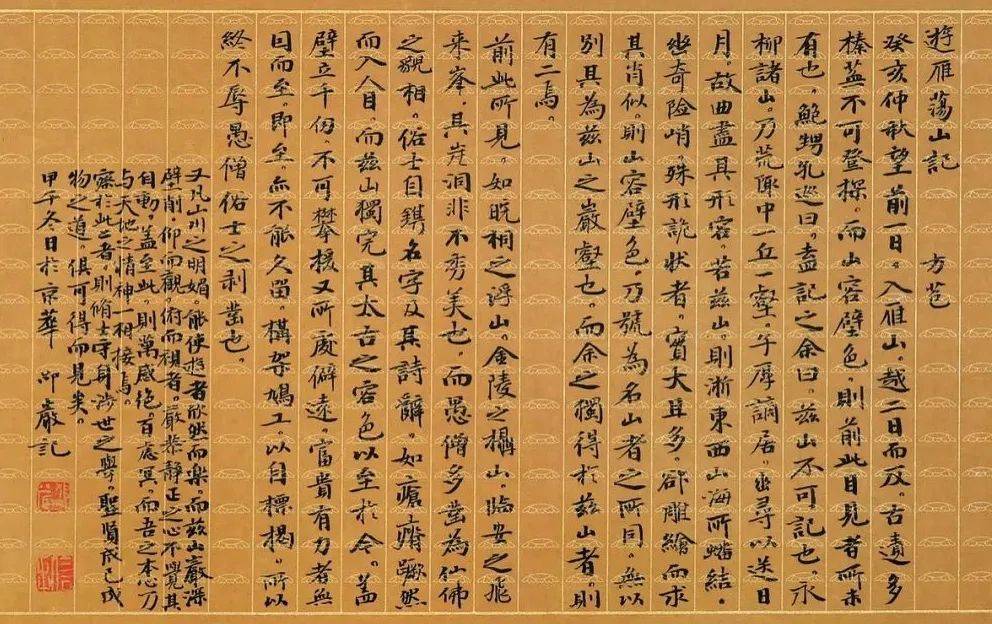 遊雁蕩山記 方苞
癸亥仲秋望前一日。入雁山。越二日而反。古蹟多
榛蕪不可登探。而山容壁色。則前此目見者所未
有也。鮑甥孔巡曰。盍記之余曰。茲山不可記也。永
柳諸山。乃荒陬中一丘一壑。子厚謫居。幽尋以送日
月。故曲盡其形容。若茲山。則浙東西山海所蟠結。
幽奇險峭。殊形詭狀者。實大且多。欲雕繪而求
其肖似。則山容壁色。乃號為名山者之所同。無以
別其為茲山之巖壑也。而余之獨得於茲山者。則
有二焉。
前此所見。如皖桐之浮山。金陵之攝山。臨安之飛
来峯。其崖洞非不秀美也。而愚僧多鑿為仙佛
之貌相。俗士自鐫名字及其詩辭。如瘡痏蹶然
而入人目。而茲山獨完其太古之容色以至於今。蓋
壁立千仞。不可攀援又所處僻遠。富貴有力者無
因而至。即至。亦不能久留。構架鳩工。以自標揭。所以
終不辱愚僧俗士之剥鑿也。
又凡山川之明媚。能使遊者欣然而樂。而茲山巖深
壁削。仰而觀。俯而視者。嚴恭静正之心不覺其
自動。蓋至此。則萬感絶百慮冥。而吾之本心乃
与天地之情神一相接焉。
察於此二者。則脩士守身涉世之學。聖賢成己成
物之道。俱可得而見矣。
甲午冬日於京華 巖記